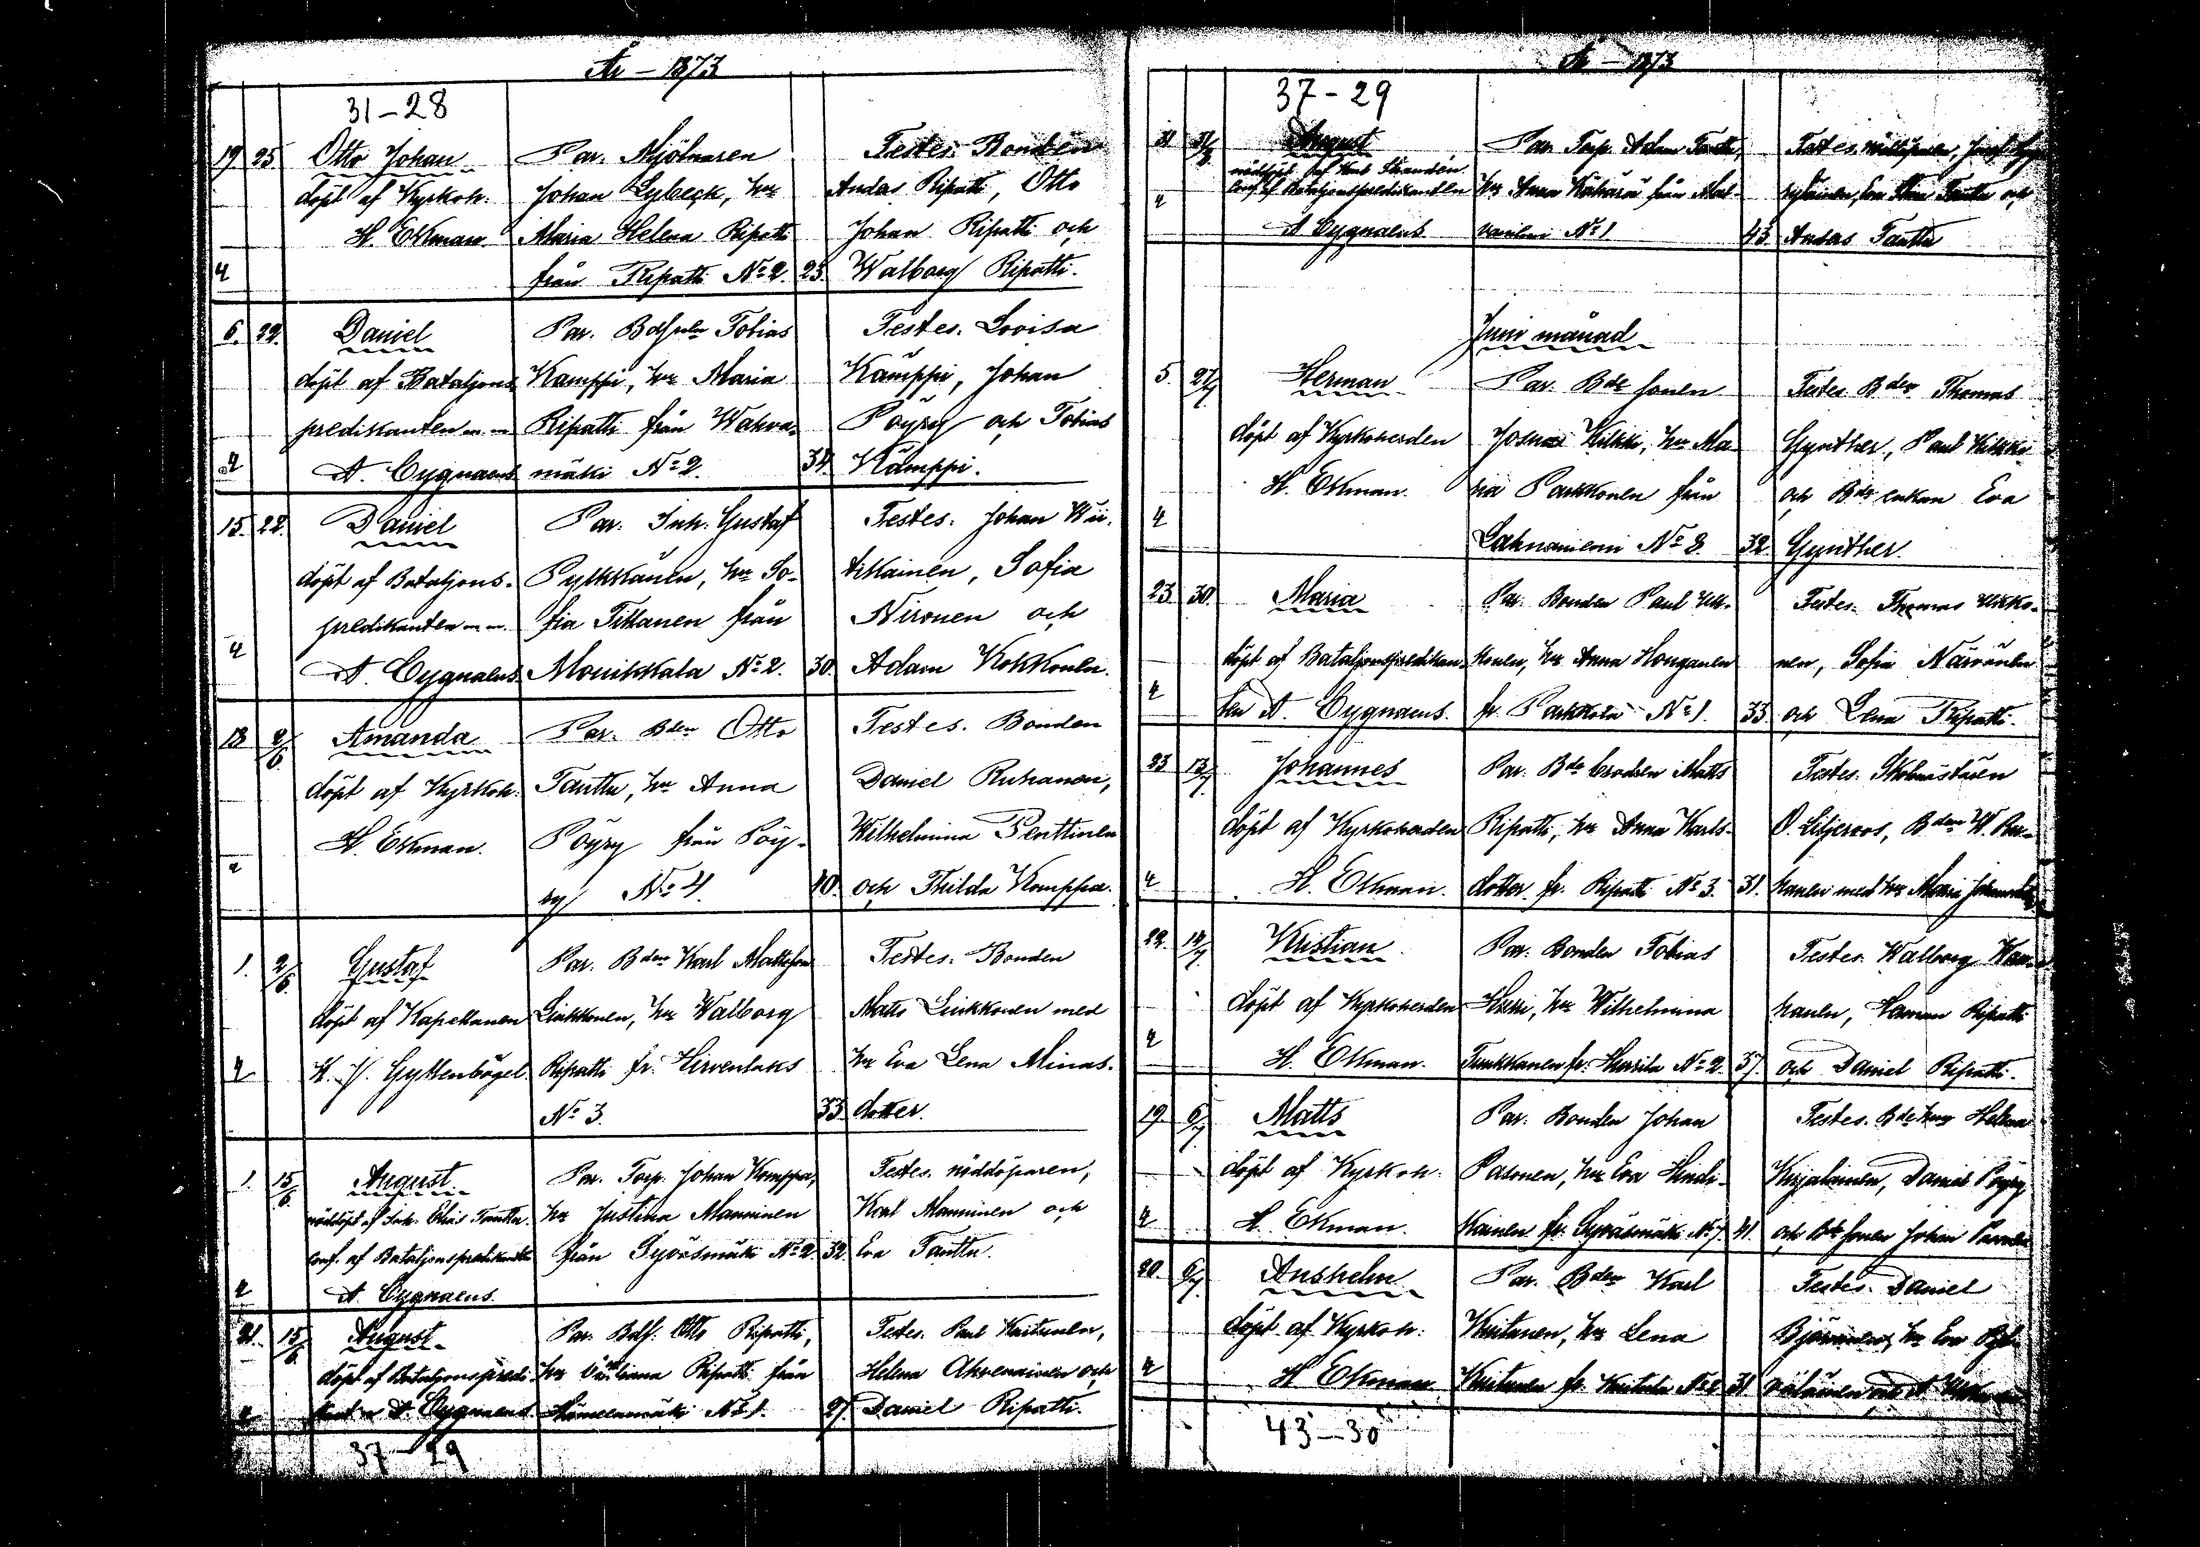 År – 1873
31–28
19 25. Otto Johan Par. Mjölnaren Testes. Bonden
döpt af Kyrkoh. Johan Lybeck, hu Andas Ripatti, Otto
H. Ekman Maria Helena Ripatti Johan Ripatti och
4 från Ripatti No 2. 23. Walborg Ripatti.
6. 22. Daniel Par. Tobias Testes. Lovisa
döpt af Bataljons Kämppi, hu Maria Kämppi, Johan
predikanten Ripatti från Wahva- Pöyry och Tobias
4 A. Cygnaeus mäki No 2. 34. Kämppi.
15. 22. Daniel Par. Inh. Gustaf Testes. Johan Wii-
döpt af Bataljons- Pylkkänen, hu So- tikainen, Sofia
predikanten fia Tikkanen från Nironen och
4 A. Cygnaeus Mouikkala No 2. 30. Adam Kokkonen.
18 2/6 Amanda Par. Bden Otto Testes. Bonden
döpt af Kyrkoh. Tanttu, hu Anna Daniel Ruhanen,
H. Ekman. Pöyry från Pöy- Wilhelmina Penttinen
ry No 4. 40. och Thilda Komppa.
1. 2/6 Gustaf Par. Bden Karl Mattsson Testes. Bonden
döpt af Kapellanen Linkkonen, hu Walborg Matts Linkkonen med
4 K. J. Gyllenbögel. Ripatti fr. Hirvenlaks hu Eva Lena Minas-
No 3. 33. dotter.
1. 15/6 August. Par. Torp. Johan Komppa, Testes. nöddöparen,
nöddöpt af Inh. Elias Tanttu. hu Justina Manninen Karl Manninen och
conf. af Bataljonspredikanten från Syväsmäki No 2. 32. Eva Tanttu.
4 A. Cygnaeus.
21. 15/6 August. Par. Bdf. Otto Ripatti, Testes. Paul Kaitunen,
döpt af Bataljonspredi- hu Ripatti från Helena Ahvenainen och
4 A. Cygnaeus No 1. 27. Daniel Ripatti.
37–29
År – 1873
37–29
31 31/8 August Par. Torp. Adam Tanttu, Testes. nöddöparen,
nöddöpt af
conf. af Bataljonspredikanten hu Anna Kähärä från Mat- Tanttu och
A Cygnaeus No 1. 43. Andas Tanttu
Juni månad
5. 27/7 Herman Par. Bde sonen Testes Bden Thomas
döpt af Kyrkoherden Josua Kikki, hu Ma- Gynther, Paul
H. Ekman. ria Parkkonen från och Bde enkan Eva
4 Lahnaniemi No 8. 32. Gynther.
23. 30. Maria Par. Bonden Paul Uk- Testes. Thomas Ukko-
döpt af Bataljonspredikan- konen, hu Anna Honganen nen, Sofia Närvänen
4 ten A. Cygnaeus. fr. Parkkola No 1. 33 och Lena Ripatti.
23 13/7 Johannes Par. Bde brodren Matts Testes. Skolmästaren
döpt af Kyrkoherden Ripatti, hu Anna Karls- O. Liljeroos, Bden W.
4 H. Ekman. dotter. fr. Ripatti No 3. 31. med hu Maria
22. 14/7 Kristian Par. Bonden Tobias Testes. Walborg
döpt af Kyrkoherden hu Wilhelmina Ripatti
4 H. Ekman. Tuukkanen fr. No 2. 37. och Daniel Ripatti.
19. 6/7 Matts Par. Bonden Johan Testes. Helena
döpt af Kyrkoh. Pasonen, hu Eva Daniel Pöyry
4 H. Ekman. fr. Syväsmäki No 7. 41. och Bde sonen Johan Pasonen
20. 6/7 Anshelm Par. Bden Karl Testes. Daniel
döpt af Kyrkoh. hu Lena hu Eva
4 H Ekman fr. No 2 31
43–30